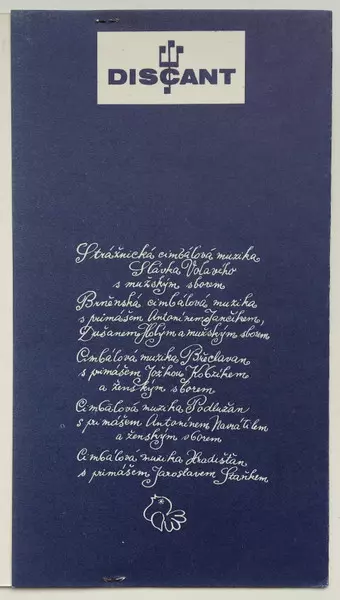 DISCANT
Strážnická cimbálová muzika
Slávka Volavého
s mužským sborem
Brněnská cimbálová muzika
s primášem Antonínem Jančíkem,
Dušanem Holým a mužským sborem
Cimbálová muzika Břeclavan
s primášem Jožkou Kobzíkem
a ženským sborem
Cimbálová muzika Podlužan
s primášem Antonínem Navrátilem
a ženským sborem
Cimbálová muzika Hradišťan
s primášem Jaroslavem Staňkem